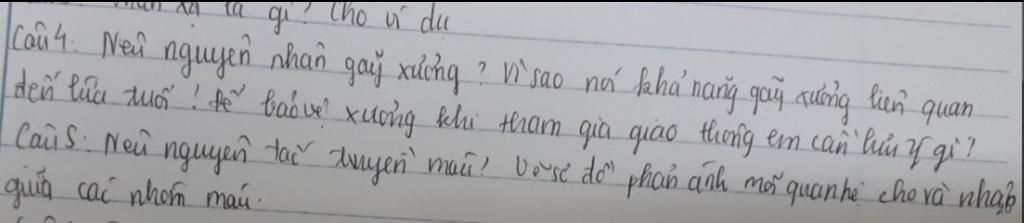 phản xạ là gì? Cho ví dụ
Câu 4: Nêu nguyên nhân gãy xương? Vì sao nói khả năng gãy xương liên quan
đến lứa tuổi? Để bảo vệ xương khi tham gia giao thông em cần lưu ý gì?
Câu 5: Nêu nguyên tắc truyền máu? Vẽ sơ đồ phản ánh mối quan hệ cho và nhận
giữa các nhóm máu.